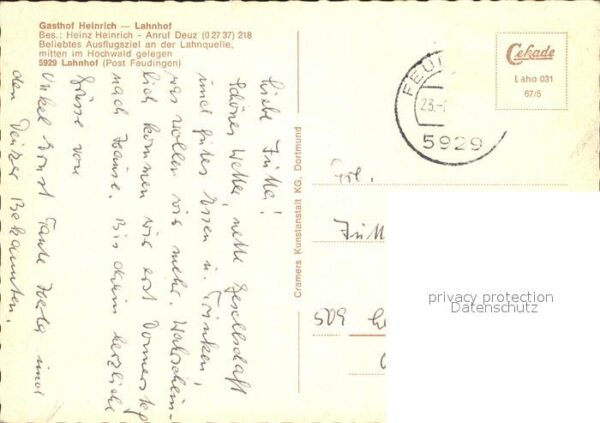 Gasthof Heinrich — Lahnhof
Bes.: Heinz Heinrich - Anruf Deuz (0 27 37) 218
Beliebtes Ausflugsziel an der Lahnquelle,
mitten im Hochwald gelegen
5929 Lahnhof (Post Feudingen)
Liebe Jutta!
Schönes Wetter, nette Gesellschaft
und gutes Essen u. Trinken,
was wollen wir mehr. Wahrschein-
lich kommen wir erst Donnerstag
nach Hause. Bis dahin herzliche
Grüsse von
Onkel Ernst Tante Herta und
den Deuzer Bekannten.
Cramers Kunstanstalt KG, Dortmund
Cekade
Laho 031
67/5
FEU
23.-
5929
Frl.
Jutt
509
privacy protection
Datenschutz